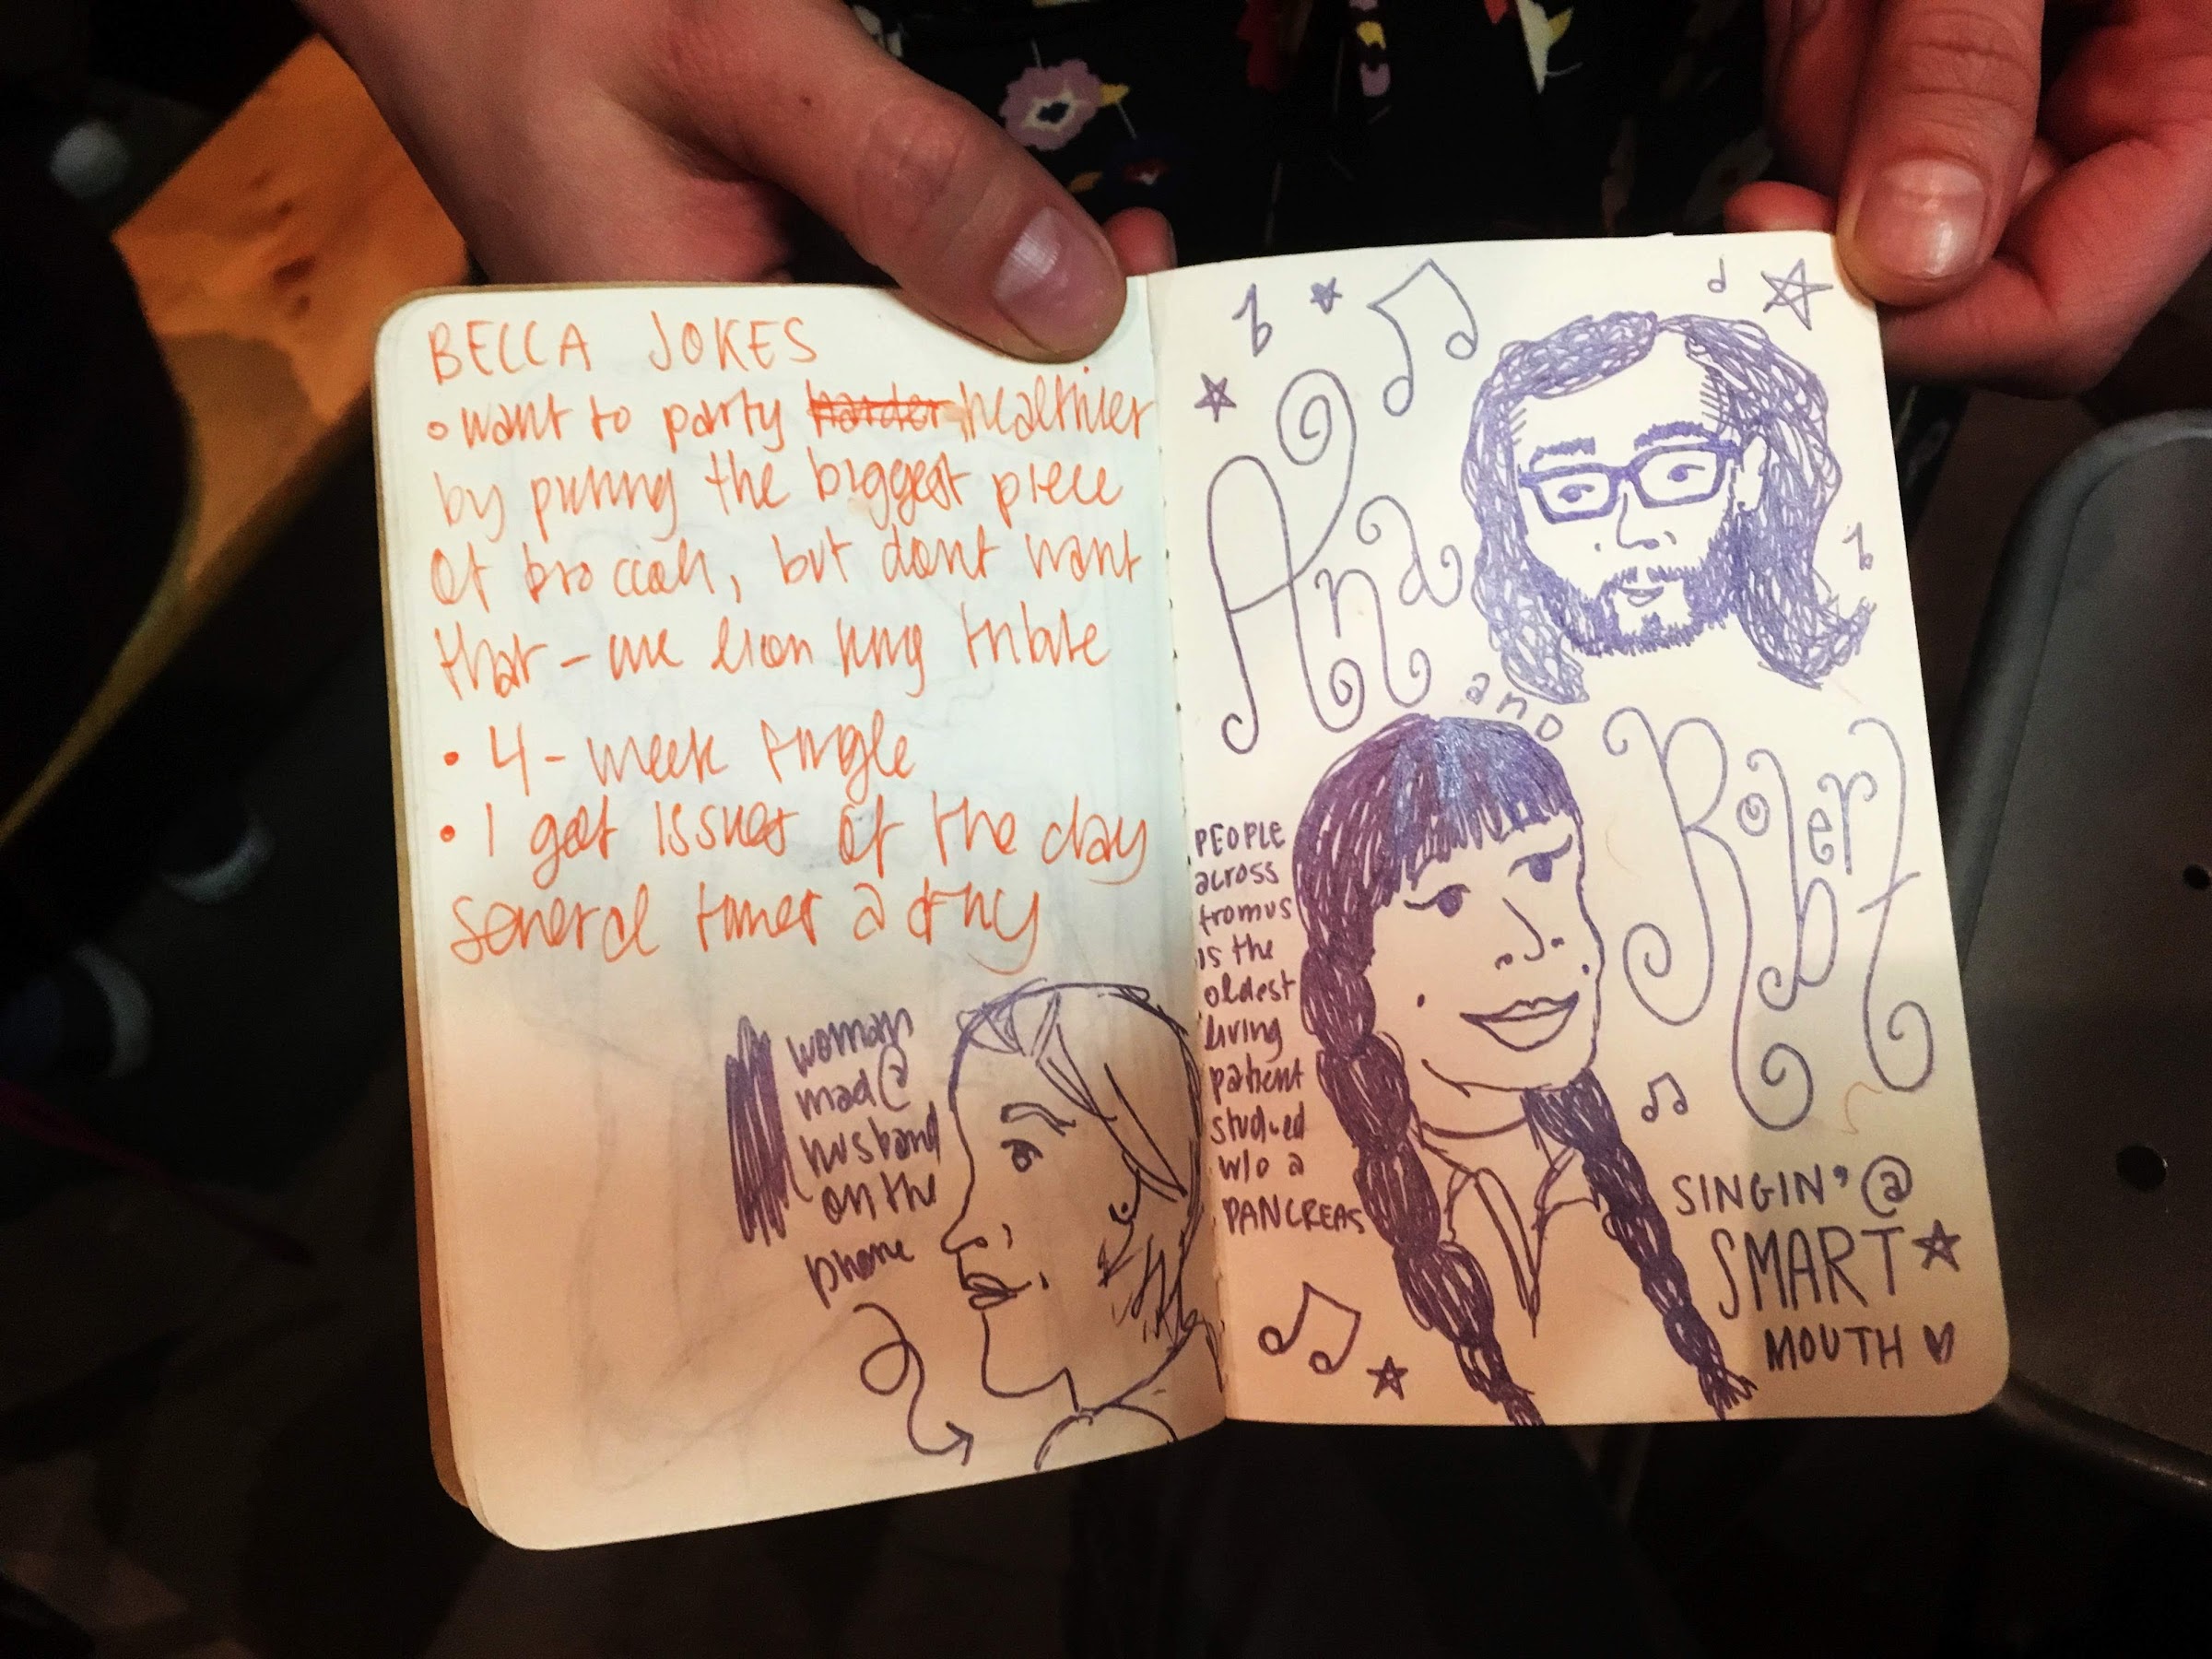 BECCA JOKES
• want to party harder healthier
by putting the biggest piece
of broccoli, but dont want
that - like lion king tribute
• 4-week single
• I get issues of the day
several times a day
woman
mad @
husband
on the
phone
Ana
and
Robert
PEOPLE
across
from us
is the
oldest
living
patient
studied
w/o a
PANCREAS
SINGIN' @
SMART
MOUTH